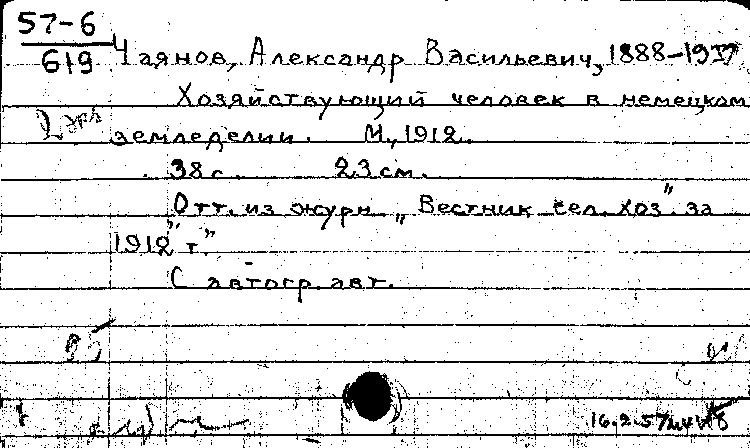 57-6
619
Чаянов, Александр Васильевич, 1888-1937
Хозяйствующий человек в немецком
2 экз
земледелии. М., 1912.
38 с. 23 см.
Отт. из журн „Вестник сел. хоз" за
1912 г"
С автогр. авт.
95
16.2.57